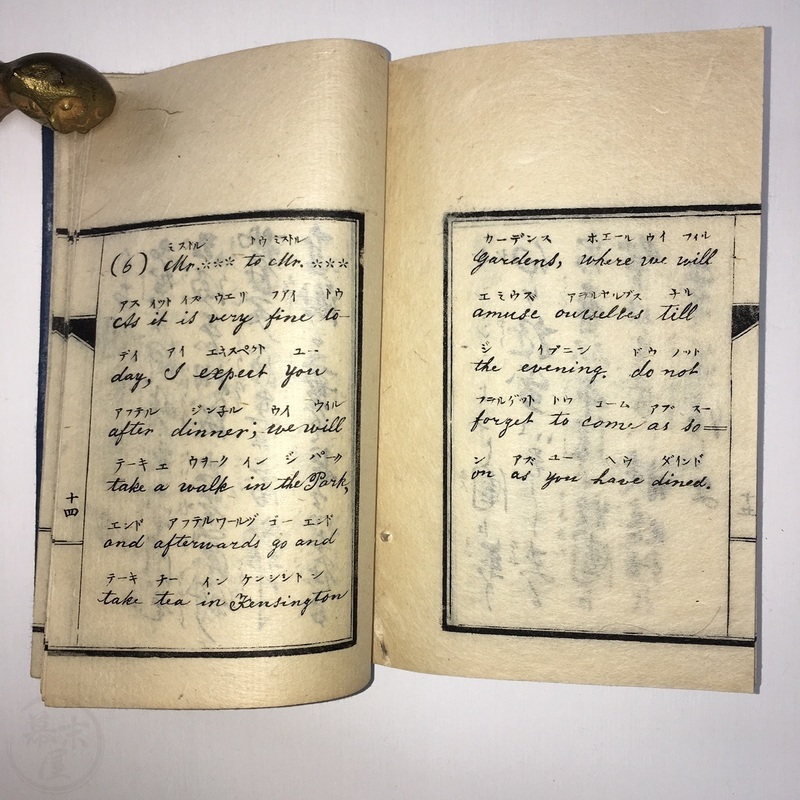 ミストル トウ ミストル
(6) Mr. *** to Mr. ***
アズ イット イズ ウエリ フアイ トウ
As it is very fine to-
デイ アイ エキスペクト ユー
day, I expect you
アフテル ジン子ル ウイ ウイル
after dinner; we will
テーキ エ ウヲーク イン ジ パーク
take a walk in the Park,
エンド アフテルワールヅ ゴー エンド
and afterwards go and
テーキ チー イン ケンシントン
take tea in Kensington
十四
カーデンス ホエール ウイ フィル
Gardens, where we will
エミウズ アヲルセルブス チル
amuse ourselves till
ジ イブニン ドウ ノット
the evening. do not
フヲルゲット トウ コーム アズ スー
forget to come as so=
ン アズ ユー ヘウ ダインド
on as you have dined.